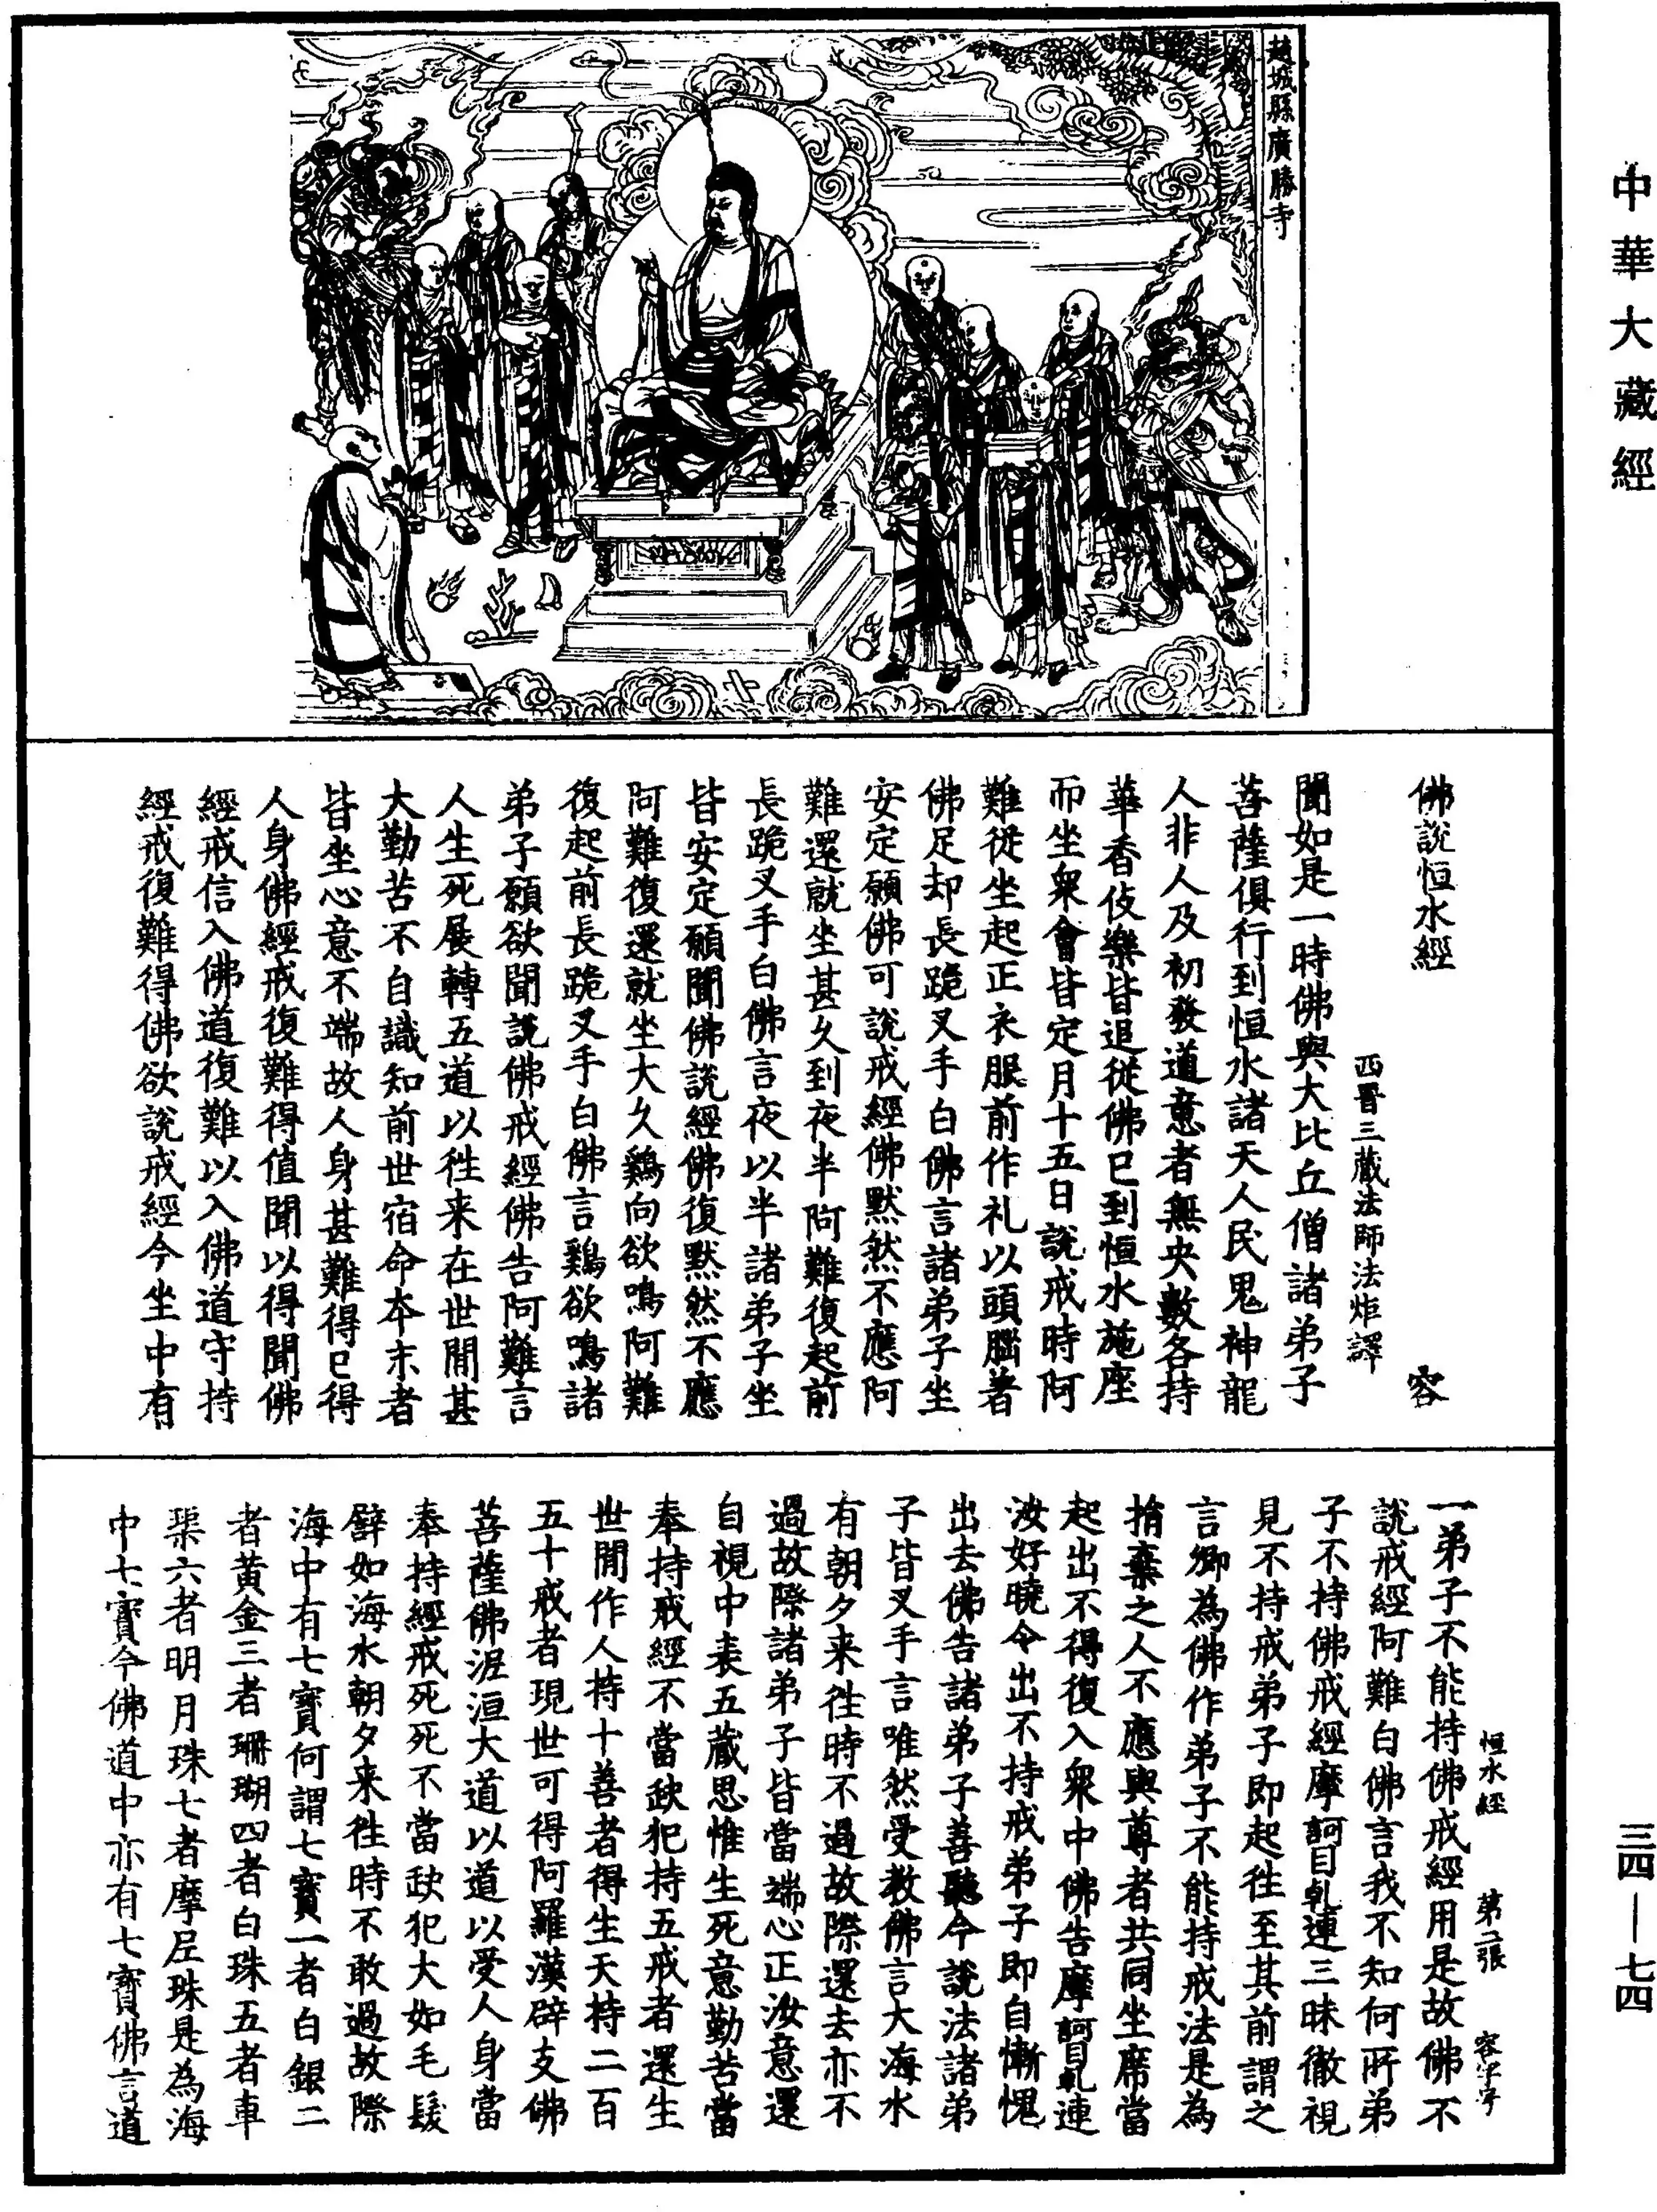 中華大藏經
趙城縣廣勝寺
佛說恒水經 容
西晉三藏法師法炬譯
聞如是一時佛與大比丘僧諸弟子
菩薩俱行到恒水諸天人民鬼神龍
人非人及初發道意者無央數各持
華香伎樂皆追從佛已到恒水施座
而坐衆會皆定月十五日說戒時阿
難從坐起正衣服前作礼以頭腦著
佛足却長跪叉手白佛言諸弟子坐
安定願佛可說戒經佛默然不應阿
難還就坐甚久到夜半阿難復起前
長跪叉手白佛言夜以半諸弟子坐
皆安定願聞佛說經佛復默然不應
阿難復還就坐大久鷄向欲鳴阿難
復起前長跪叉手白佛言鷄欲鳴諸
弟子願欲聞說佛戒經佛告阿難言
人生死展轉五道以徃来在世間甚
大勤苦不自識知前世宿命本末者
皆坐心意不端故人身甚難得已得
人身佛經戒復難得值聞以得聞佛
經戒信入佛道復難以入佛道守持
經戒復難得佛欲說戒經今坐中有
恒水經 第二張 容字号
一弟子不能持佛戒經用是故佛不
說戒經阿難白佛言我不知何所弟
子不持佛戒經摩訶目乹連三昧徹視
見不持戒弟子即起徃至其前謂之
言卿為佛作弟子不能持戒法是為
捐棄之人不應與尊者共同坐席當
起出不得復入衆中佛告摩訶目乹連
汝好曉令出不持戒弟子即自慚愧
出去佛告諸弟子善聽今說法諸弟
子皆叉手言唯然受教佛言大海水
有朝夕来徃時不過故際還去亦不
過故際諸弟子皆當端心正汝意還
自視中表五藏思惟生死意勤苦當
奉持戒經不當缺犯持五戒者還生
世間作人持十善者得生天持二百
五十戒者現世可得阿羅漢辟支佛
菩薩佛泥洹大道以道以受人身當
奉持經戒死死不當缺犯大如毛髮
辟如海水朝夕来徃時不敢過故際
海中有七寶何謂七寶一者白銀二
者黄金三者珊瑚四者白珠五者車
渠六者明月珠七者摩尼珠是為海
中七寶今佛道中亦有七寶佛言道
三四—七四